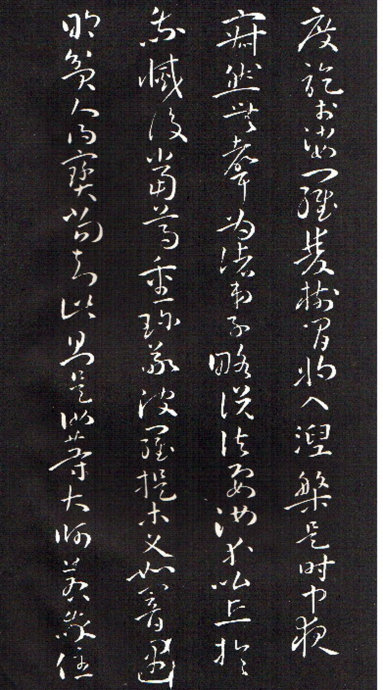 度訖於娑羅雙樹間將入涅槃是時中夜
寂然無聲為諸弟子略說法要汝等比丘於
我滅後當尊重珍敬波羅提木叉如闇遇
明貧人得寶當知此則是汝等大師若我住